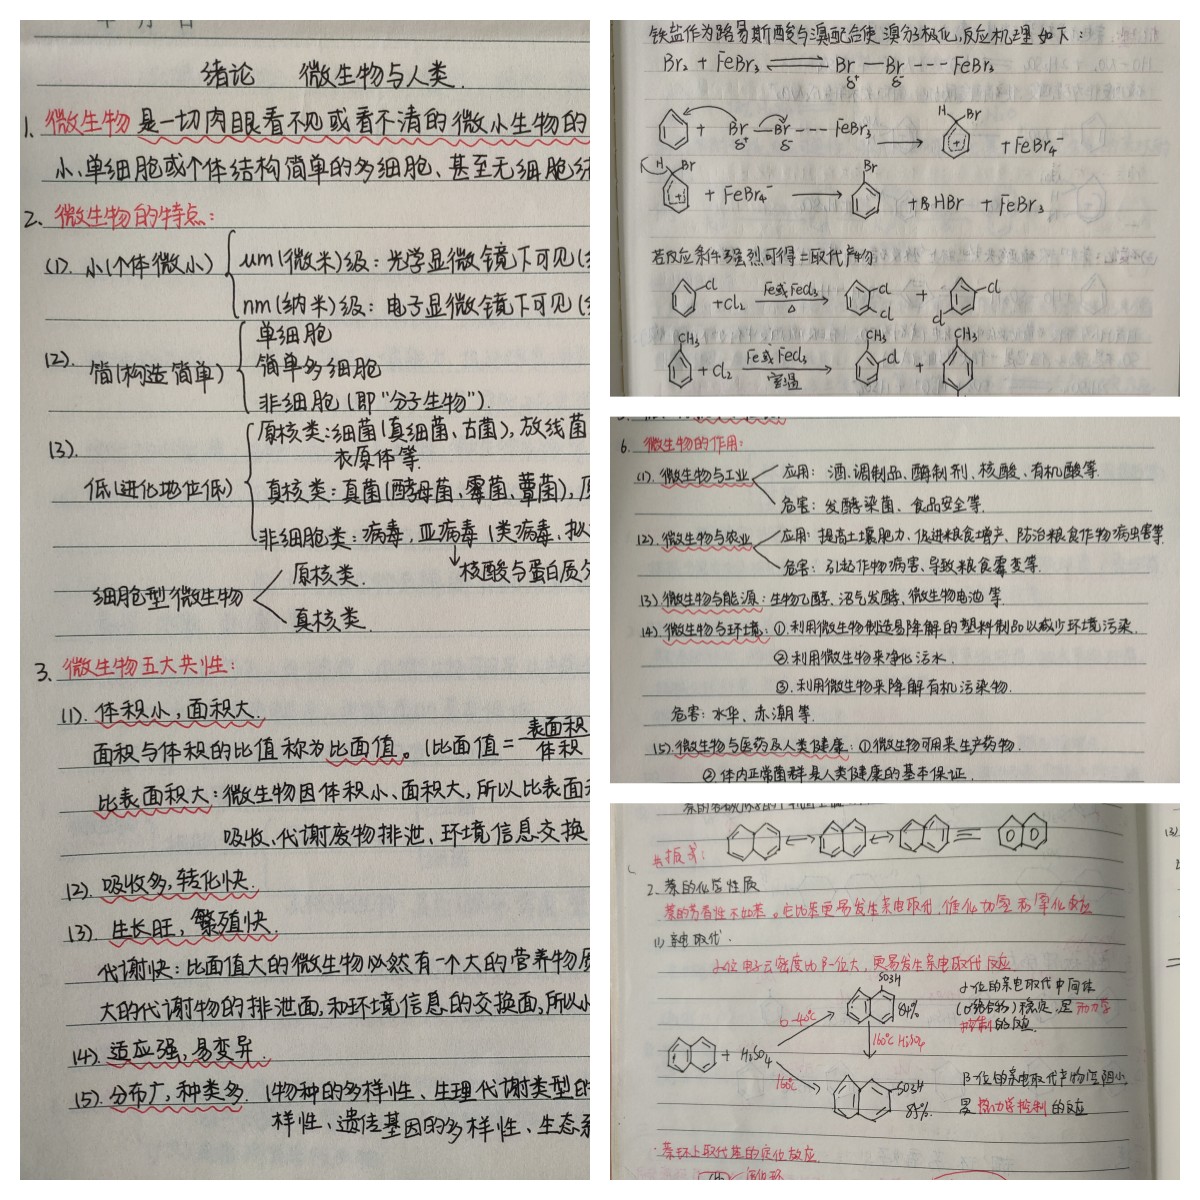 绪论 微生物与人类.
1. 微生物是一切肉眼看不见或看不清的微小生物的
小、单细胞或个体结构简单的多细胞、甚至无细胞结
2. 微生物的特点:
(1). 小(个体微小)
μm(微米)级: 光学显微镜下可见(
nm(纳米)级: 电子显微镜下可见(
(2). 简(构造简单)
单细胞
简单多细胞
非细胞(即"分子生物").
(3). 低(进化地位低)
原核类: 细菌(真细菌、古菌), 放线菌
衣原体等.
真核类: 真菌(酵母菌、霉菌、蕈菌),
非细胞类: 病毒, 亚病毒(类病毒、拟
核酸与蛋白质
细胞型微生物
原核类.
真核类.
3. 微生物五大共性:
(1). 体积小, 面积大.
面积与体积的比值称为比面值。(比面值=表面积/体积
比表面积大: 微生物因体积小、面积大, 所以比表面
吸收、代谢废物排泄、环境信息交换
(2). 吸收多, 转化快.
(3). 生长旺, 繁殖快.
代谢快: 比面值大的微生物必然有一个大的营养物质
大的代谢物的排泄面, 和环境信息的交换面, 所以
(4). 适应强, 易变异.
(5). 分布广, 种类多. (物种的多样性、生理代谢类型的
样性、遗传基因的多样性、生态系
铁盐作为路易斯酸与溴配合使溴分子极化,反应机理如下:
Br₂ + FeBr₃ ⇌ Br—Br---FeBr₃
δ⁺ δ⁻
+ Br—Br---FeBr₃ → H Br + FeBr₄⁻
δ⁺ δ⁻
H Br + FeBr₄⁻ → Br + HBr + FeBr₃
若反应条件强烈可得二取代产物
Cl +Cl₂ Fe或FeCl₃ △ → Cl Cl + Cl Cl
CH₃ +Cl₂ Fe或FeCl₃ 室温 → CH₃ Cl + CH₃
6. 微生物的作用:
(1). 微生物与工业
应用: 酒、调制品、酶制剂、核酸、有机酸等.
危害: 发酵染菌、食品安全等.
(2). 微生物与农业
应用: 提高土壤肥力、促进粮食增产、防治粮食作物病虫害等.
危害: 引起作物病害、导致粮食霉变等.
(3). 微生物与能源: 生物乙醇、沼气发酵、微生物电池等
(4). 微生物与环境: ①.利用微生物制造易降解的塑料制品以减少环境污染.
②利用微生物来净化污水.
③.利用微生物来降解有机污染物.
危害: 水华、赤潮等.
(5). 微生物与医药及人类健康: ①微生物可用来生产药物.
②体内正常菌群是人类健康的基本保证.
共振式:
2. 萘的化学性质
萘的芳香性不如苯。它比苯更易发生亲电取代,催化加氢和氧化反应
(1) 亲电取代.
α-位电子云密度比β-位大, 更易发生亲电取代反应
+ H₂SO₄
0-40℃
SO₃H
84%
α-位的亲电取代中间体
(σ络合物)稳定, 是动力学
控制的反应.
160℃ H₂SO₄
160℃
SO₃H
85%
β-位的亲电取代产物空阻小
是热力学控制的反应
萘环上取代基的定位效应